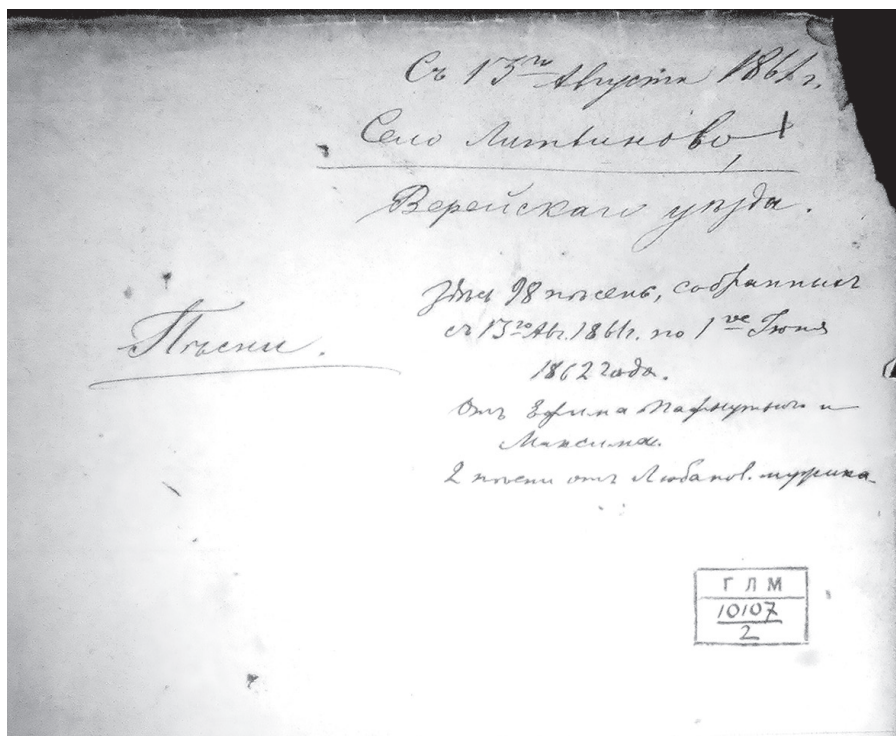 Съ 13го Августа 1861 г.
Село Литвиново,
Верейскаго уѣзда.
Пѣсни.
Здѣсь 98 пѣсенъ, собранныхъ
съ 13го Авг. 1861 г. по 1ое Іюня
1862 года.
Отъ Ефима Пафнутьича и
Максима.
2 пѣсни отъ Любанов. мужика
ГЛМ
10107
2